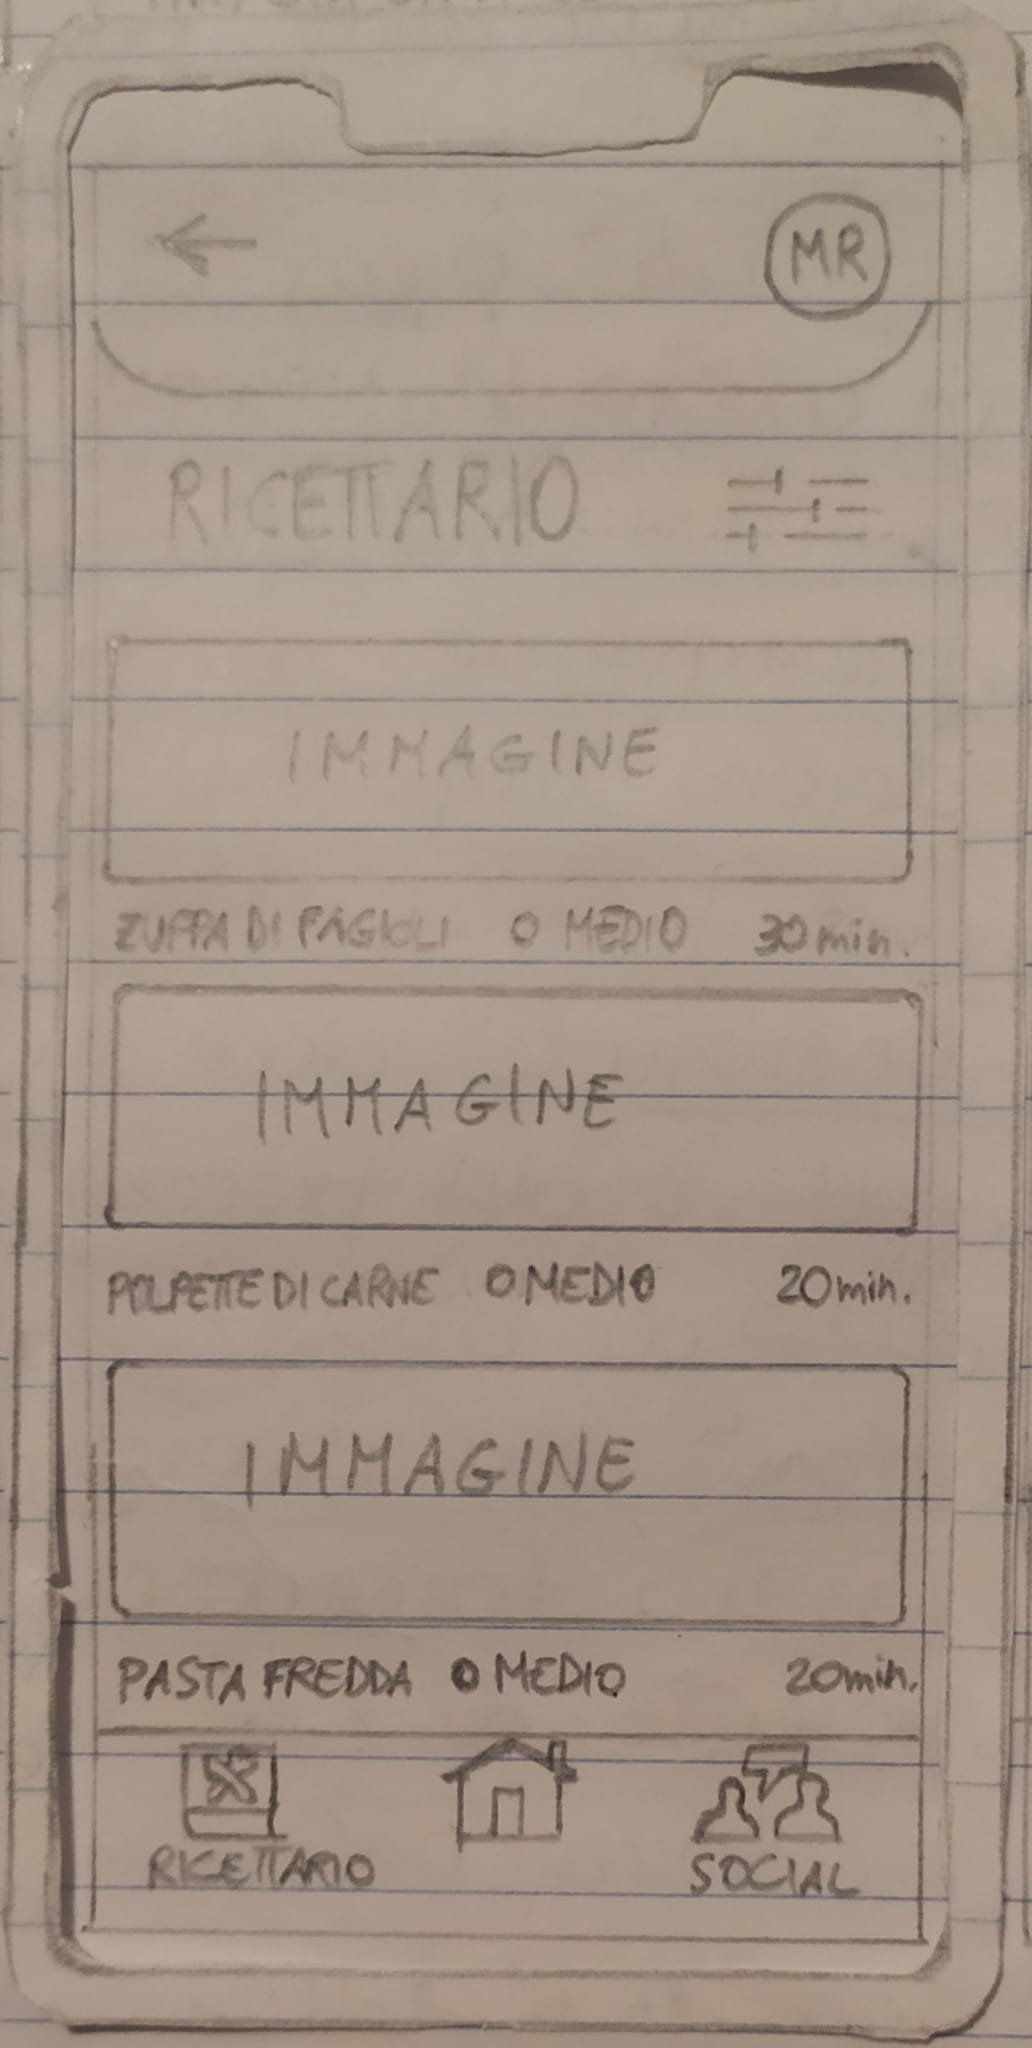 MR
RICETTARIO
IMMAGINE
ZUPPA DI FAGIOLI O MEDIO 30 min.
IMMAGINE
POLPETTE DI CARNE O MEDIO 20 min.
IMMAGINE
PASTA FREDDA O MEDIO 20 min.
RICETTARIO
SOCIAL